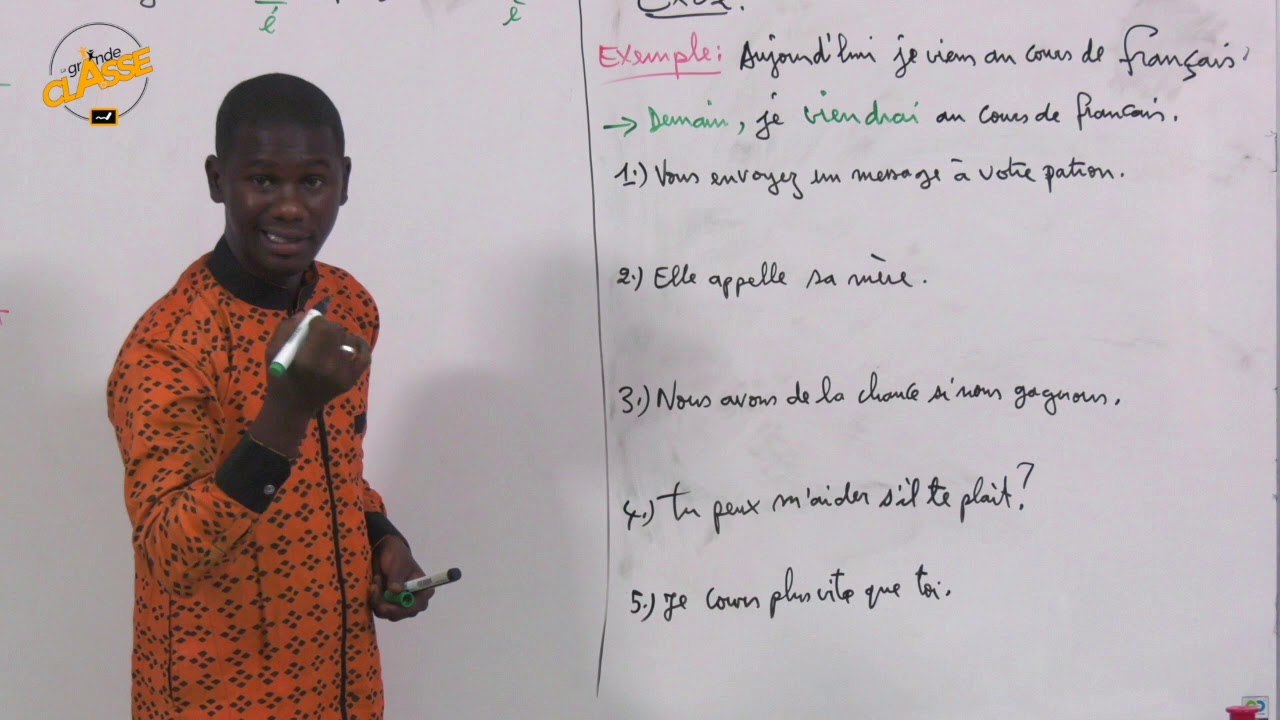 La grande
CLASSE
é
è
Exo2:
Exemple: Aujourd'hui je viens au cours de français.
→ Demain, je viendrai au cours de francais.
1.) Vous envoyez un message à votre patron.
2.) Elle appelle sa mère.
3.) Nous avons de la chance si nous gagnons.
4.) Tu peux m'aider s'il te plait?
5.) Je cours plus vite que toi.